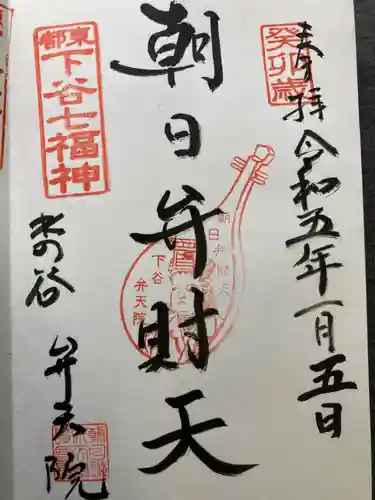 奉拝 令和五年一月五日
癸卯歳
朝日弁財天
朝日弁財天
下谷
弁天院
東都
下谷七福神
下谷 弁天院